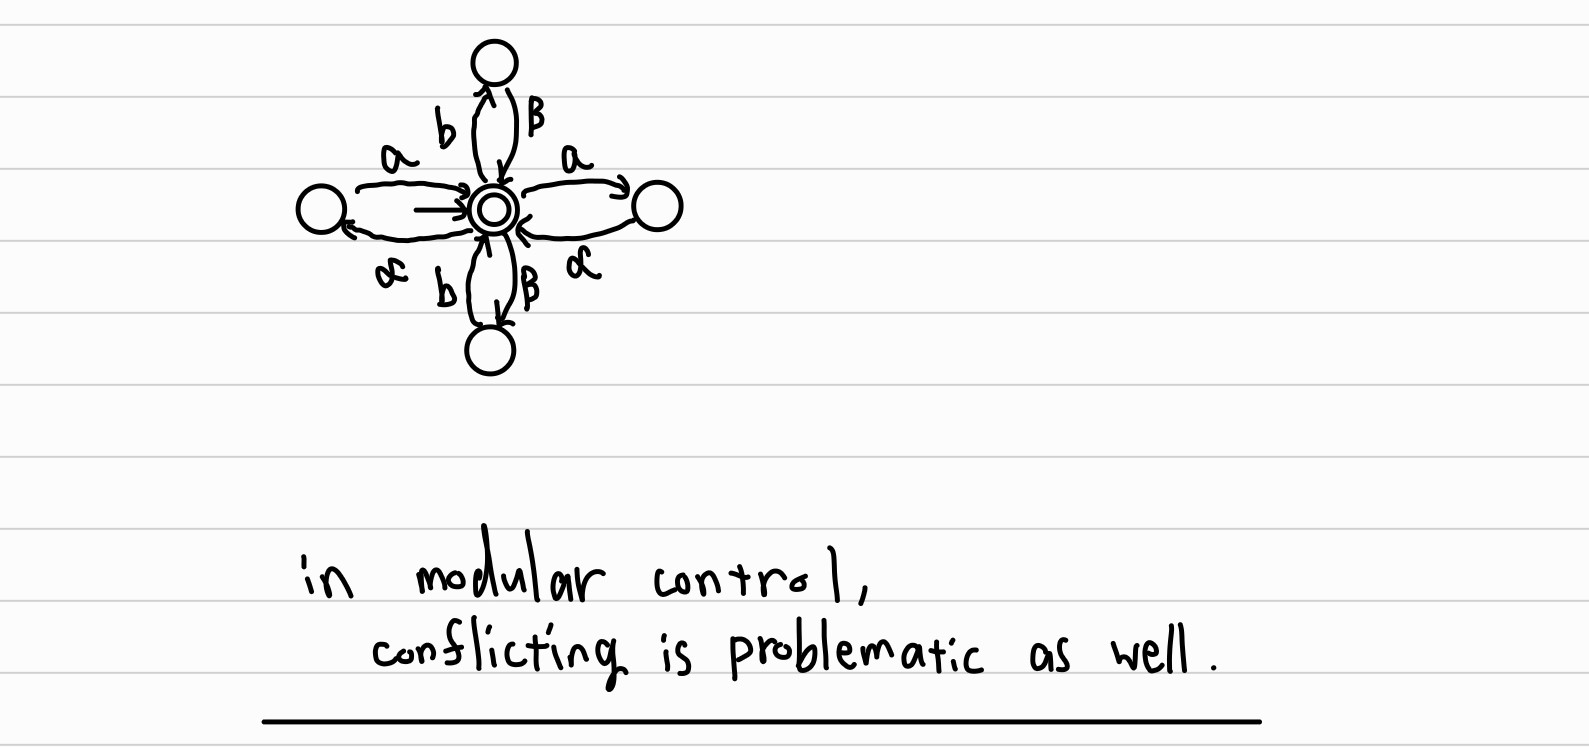 b β
a a
α b β α
in modular control,
conflicting is problematic as well.